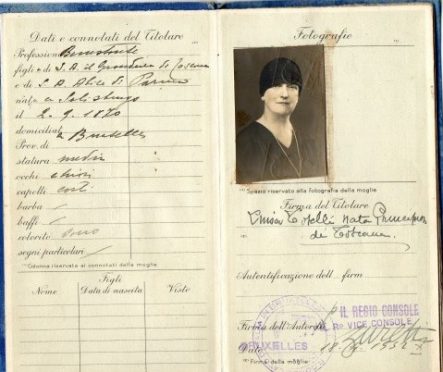 Dati e connotati del Titolare
Professione Benestante
figlia di S. A. il Granduca di Toscana
e di S. A. Alice di Parma
nata a Salisburgo
il 2. 9. 1870
domiciliat a Bruxelles
Prov. di
statura media
occhi
capelli
barba /
baffi /
colorito
segni particolari /
(*) Colonna riservata ai connotati della moglie
Figli
Nome Data di nascita Visto
Fotografie
(**) Spazio riservato alla fotografia della moglie
Firma del Titolare
Luisa Toselli nata Principessa
di Toscana.
Autentificazione dell firm
Firma dell'Autorità
IL REGIO CONSOLE
IL Rº VICE CONSOLE
BRUXELLES
Data
(**) Firma della moglie